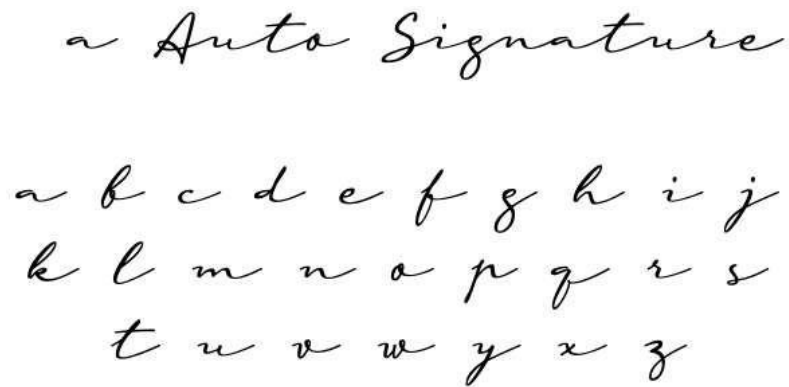 a Auto Signature
a b c d e f g h i j
k l m n o p q r s
t u v w y x z